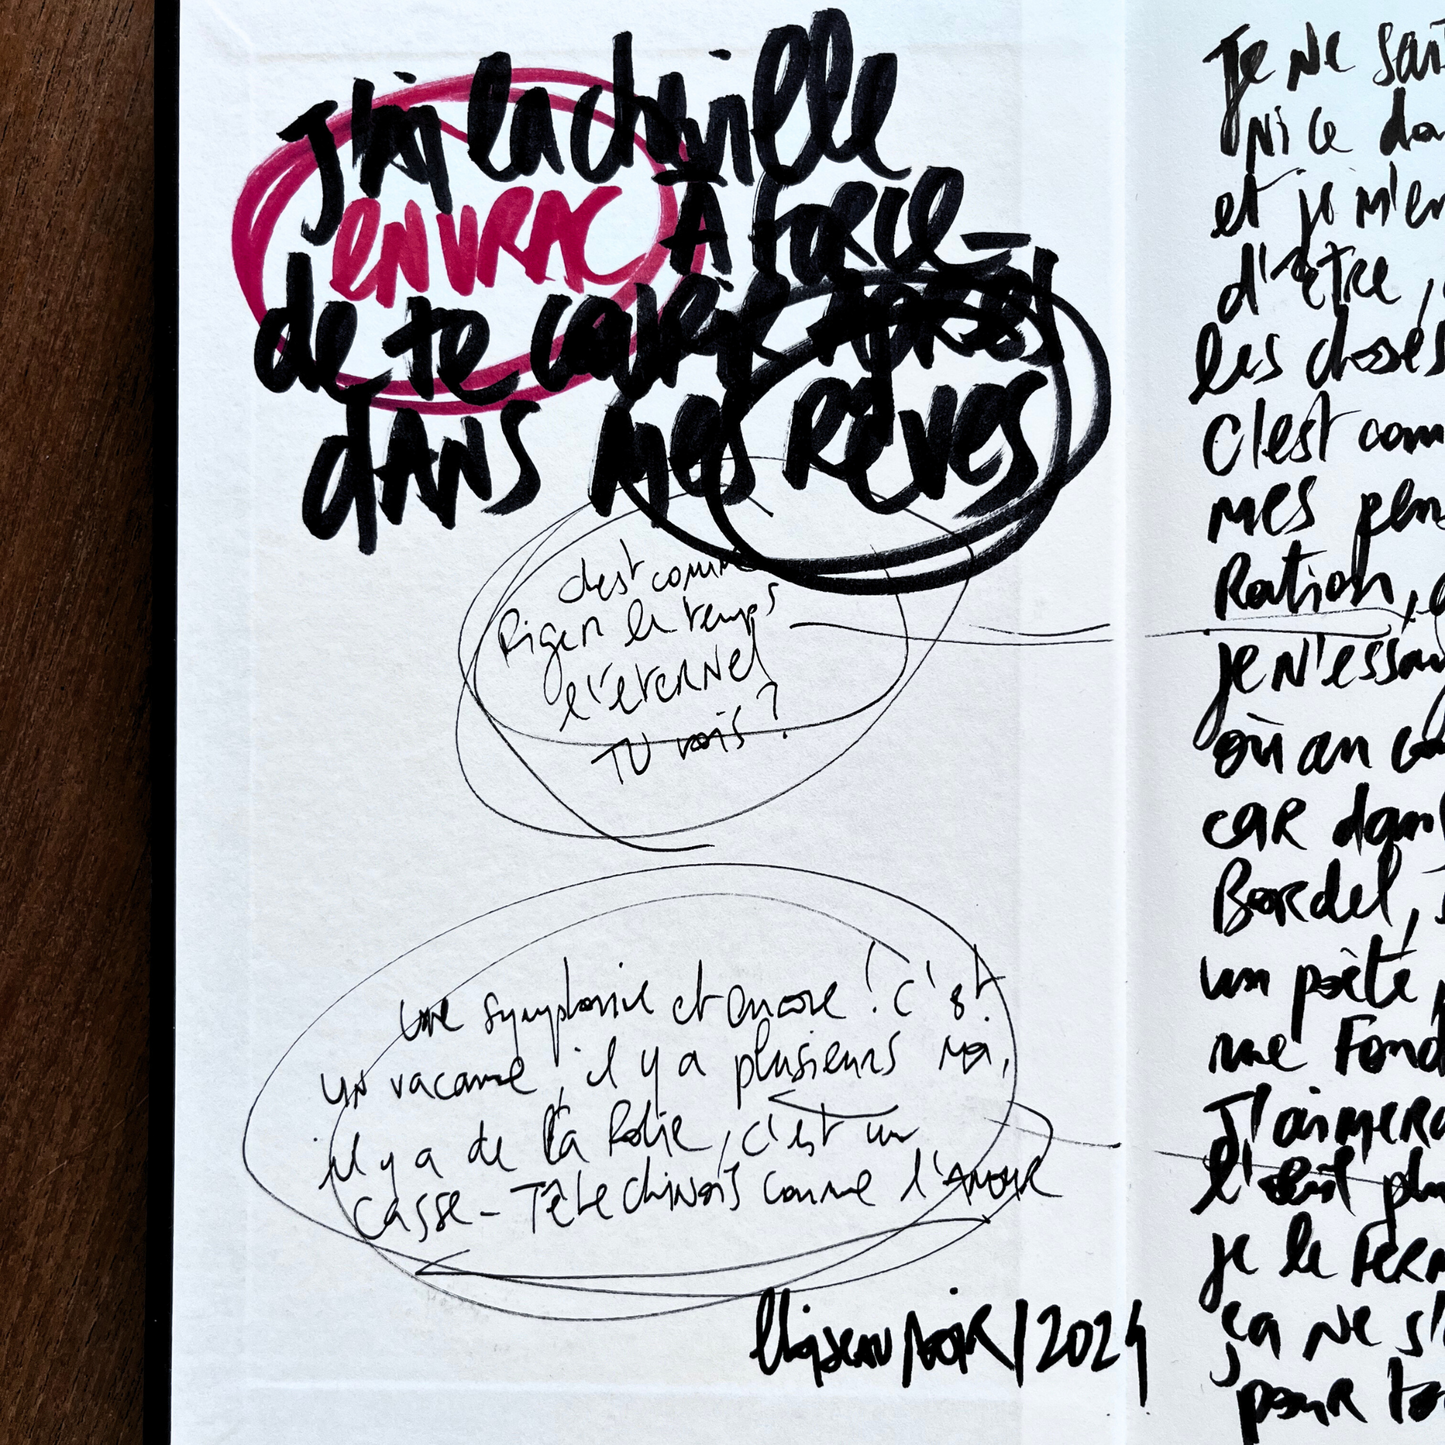 J'ai la cheville
en vrac à force
de te courir après
dans mes rêves
c'est comme
figer le temps
l'éternel
TU vois ?
une symphonie et encore ! c'est
un vacarme, il y a plusieurs moi,
il y a de la folie, c'est un
casse-tête chinois comme l'amour
l'oiseau noir / 2024
Je ne sais
ni ce
et je m'en
d'être,
les choses
C'est
mes
Ration,
je n'essay
où an
car dans
Bordel,
un poète
me Fond
J'aimera
l'
je le
ça ne s'
pour